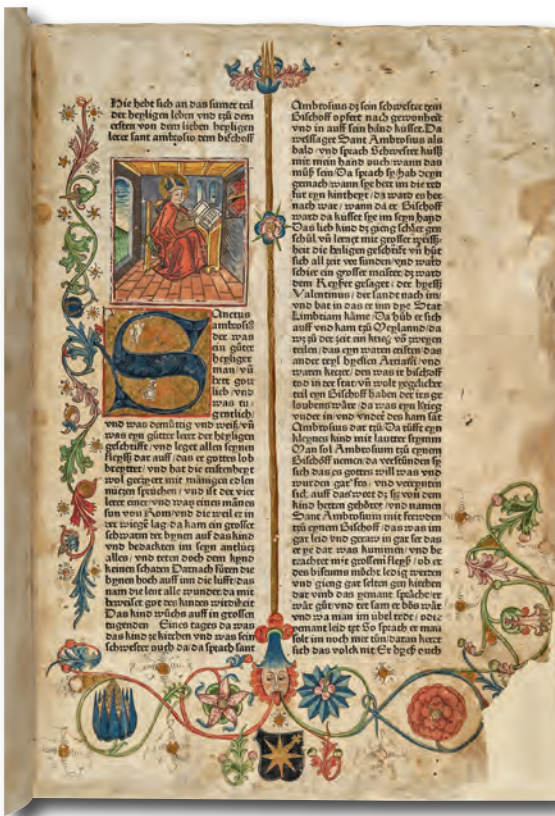 Hie hebt sich an das sumer teil
der heyligen leben vnd tzů dem
ersten von dem lieben heyligen
lerer sant ambrosio dem bischoff
Sanctus
ambrosiꝰ
der was
ein gůter
heyliger
man / vñ
hett gott
lieb / vnd
was tu
gentlich /
vnd was demůttig vnd weiß / vñ
was eyn gůtter lerer der heyligen
geschrifft / vnd leget allen seynen
fleyß dar auff / das er gottes lob
breyttet / vnd hat die cristenheyt
wol gecziert mit mänigen edlen
nutzen sprüchen / vnd ist der vier
lerer einer / vnd was eines mānes
sun von Rom / vnd die weil er in
der wiegē lag / da kam ein grosser
schwarm der bynen auff das kind
vnd bedackten im seyn antlücz
alles / vnd teten doch dem kynd
keinen schaden Darnach fůren die
bynen hoch auff inn die lüfft / das
nam die leut alle wunder / da mit
beweiset got des kindes wirdikeit
Das kind wůchs auff in grossen
tugenden Eines tages da was
das kind ze kirchen vnd was sein
schwester ouch da / da sprach sant
Ambrosius dz sein schwester dem
Bischoff opfert nach gewonheit
vnd in auff sein händ kusset. Da
weissaget Sant Ambrosius als
bald / vnd sprach Schwester kuß
mir mein hand ouch / wann das
můß sein / Da sprach sy hab deyn
gemach / wann sye hett im die red
für eyn kintheyt / dz ward es her
nach war / wann da er Bischoff
ward da kusset sye im seyn hand
Das lieb kind dz gieng schier gen
schůl vñ lernet mit grosser weyß-
heit die heiligen geschrift vñ hůt
sich all zeit vor sünden / vnd ward
schier ein grosser meister / dz ward
dem Keyser gesaget / der hyeß
Valentinus / der sandt nach im /
vnd bat in das er inn dye Stat
Limbriam käme / Da hůb er sich
auff vnd kam tzů Meylannd / da
wz zů der zeit ein krieg vō zweyen
teilen / das eyn waren cristen / das
ander teyl hyessen Arriani / vnd
waren keczer / den was ir bischoff
tod in der stat / vñ wolt yegclicher
teil eyn Bischoff haben der irs ge
laubens wäre / da was eyn krieg
vnder in / vnd vnder des kam sāt
Ambrosius dar tzů / Da růfft eyn
kleynes kind mit lautter stymm
Man sol Ambrosium tzů eynem
Bischoff nemen / da verstůnden sy
sich das es gottes will was / vnd
wurden gar fro / vnd vereynten
sich auff das wort dz sy von dem
kind hetten gehöret / vnd namen
Sant Ambrosium mit frewden
tzů eynem Bischoff / das was im
gar leid vnd geraw in gar ser das
er ye dar was kummen / vnd be
trachtet mit grossem fleyß / ob er
des bistums möcht ledig werden
vnd gieng gar selten gen kirchen
dar vmb das yemant spräche / er
wär gůt / vnd tet sam er bös wär
vnd wa man im übel redt / oder
yemant leid tet So sprach er man
solt im noch mer tůn / daran keret
sich das volck nit Er hyeß ouch